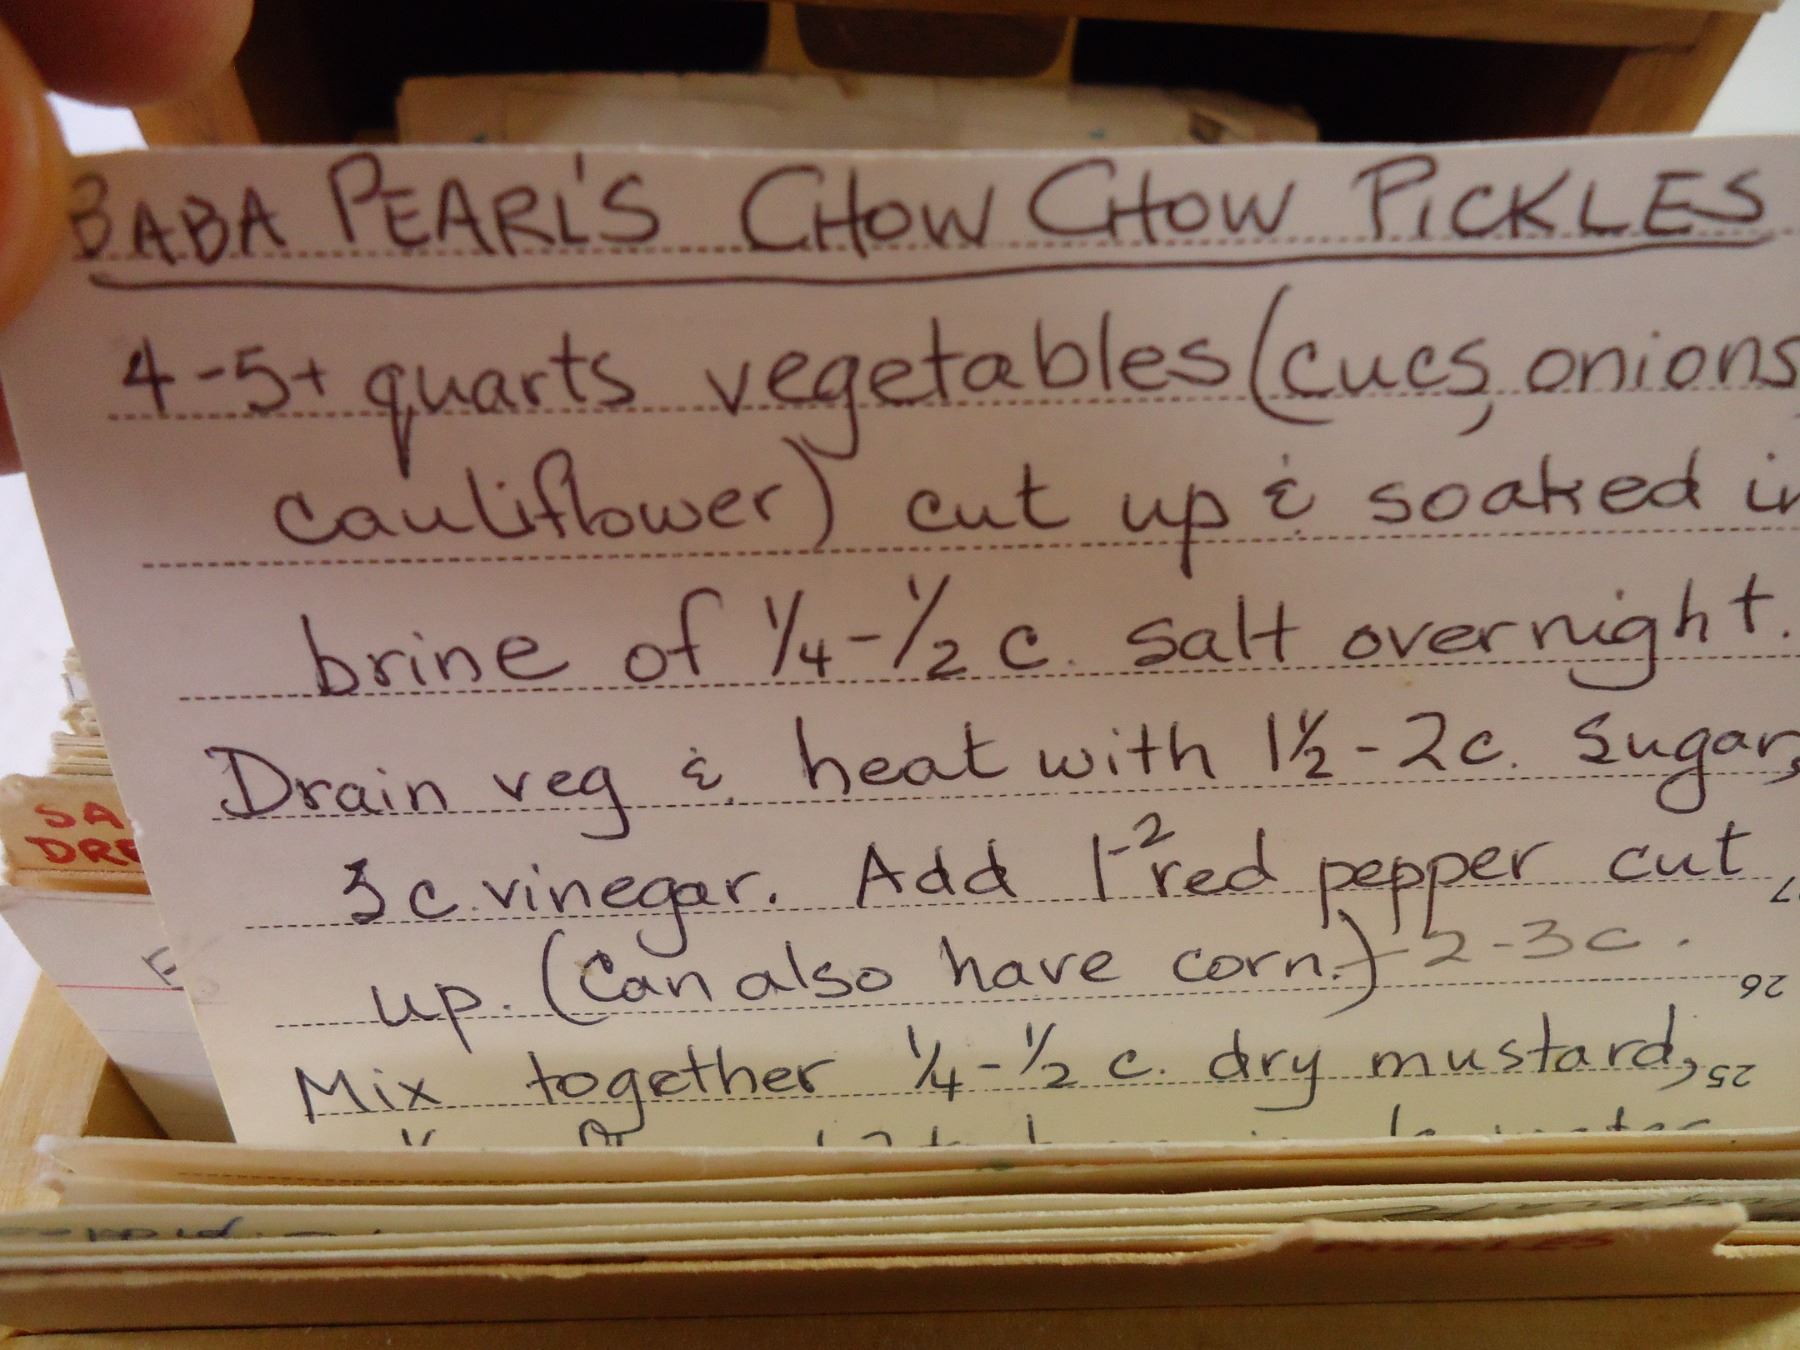 BABA PEARL'S CHOW CHOW PICKLES
4-5+ quarts vegetables (cucs, onions,
cauliflower) cut up & soaked in
brine of 1/4-1/2 c. salt overnight.
Drain veg & heat with 1 1/2-2c. sugar,
3 c. vinegar. Add 1-2 red pepper cut
up. (Can also have corn.) -2-3c.
Mix together 1/4-1/2 c. dry mustard,
27
26
25
SA
DRE